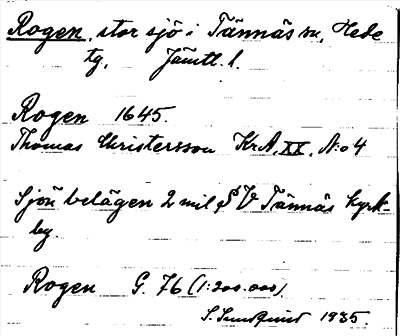 Rogen, stor sjö i Tännäs sn, Hede
tg, Jämtl. l.
Rogen 1645.
Thomas Christersson Kr.A. XX, N:o 4
Sjön belägen 2 mil S V Tännäs kyrk-
by.
Rogen G. 76 (1:200.000).
S. Sundquist 1935